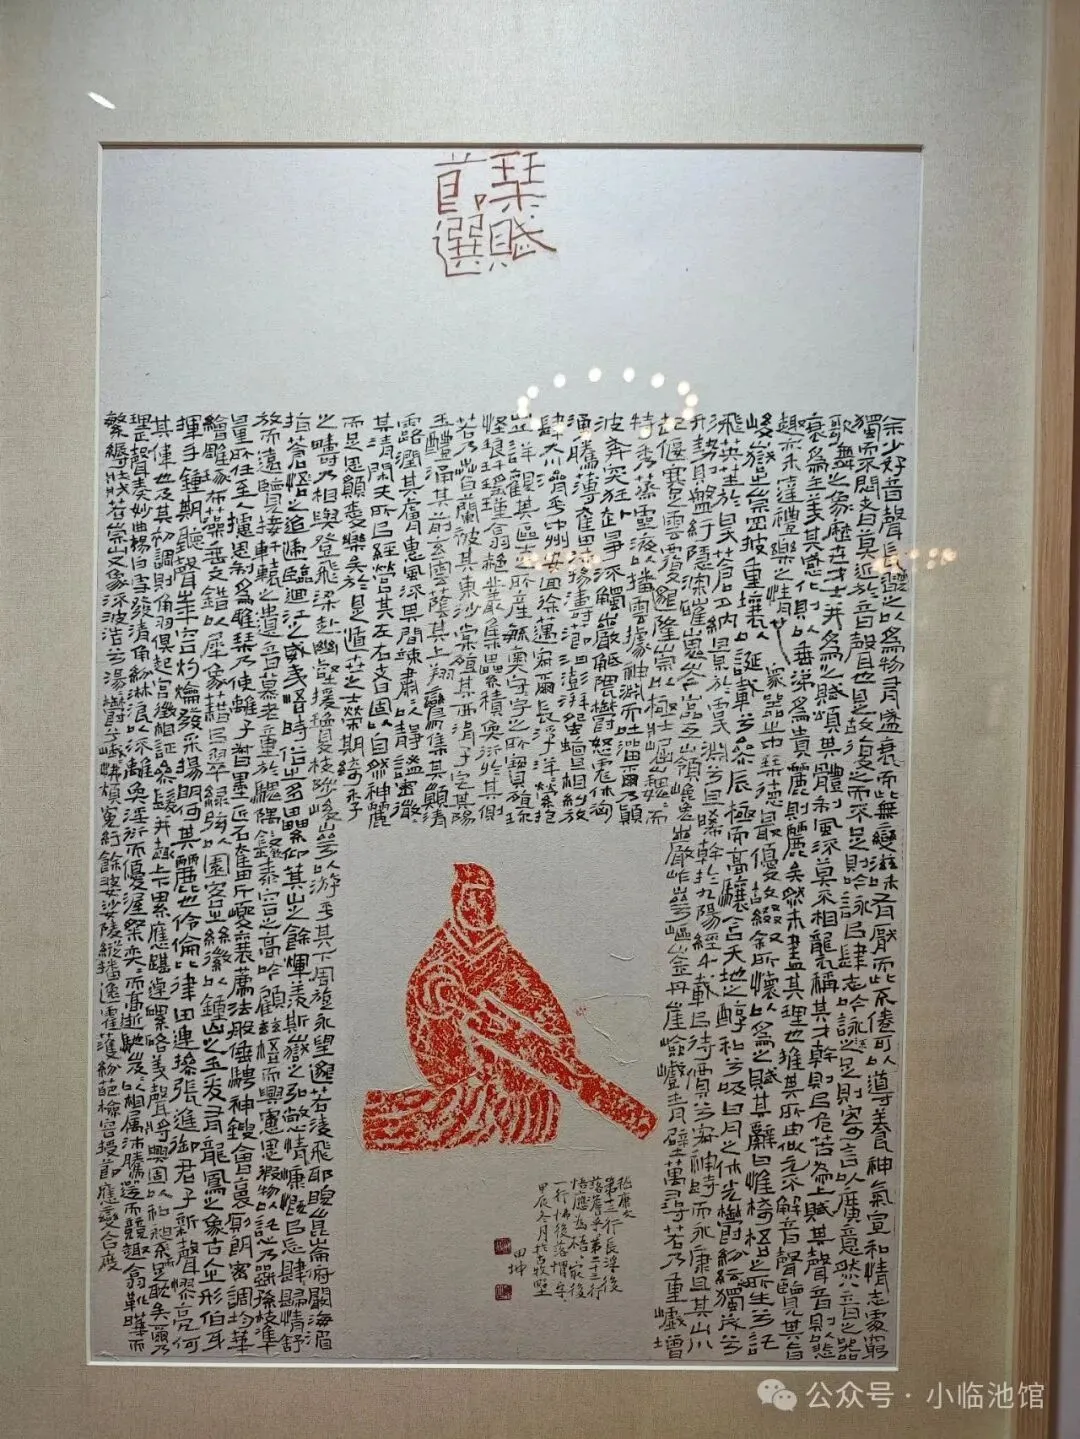 琹賦
節選
余少好音聲長而翫之以為物有盛衰而此無變滋味有厭而此不倦可以導養神氣宣和情志處窮
獨而不悶者莫近於音聲也是故復之而不足則吟詠以肆志吟詠之不足則寄言以廣意然八音之器
歌舞之象歷世才士並為之賦頌其體制風流莫不相襲稱其才幹則以危苦為上賦其聲音則以悲
哀為主美其感化則以垂涕為貴麗則麗矣然未盡其理也推其所由似元不解音聲覽其旨
趣亦未達禮樂之情也眾器之中琹德最優故綴敘所懷以為之賦其辭曰惟椅梧之所生兮託
峻嶽之崇岡披重壤以誕載兮參辰極而高驤含天地之醇和兮吸日月之休光鬱紛紜獨茂兮
飛英蕤於昊蒼夕納景於虞淵兮旦晞幹於九陽經千載以待價兮寂神跱而永康且其山川
形勢則盤紆隱深磪嵬岑嵓玄嶺巉巖岞崿嶇崟丹崖嶮巇青壁萬尋若乃重巘增
起偃蹇雲覆邈隆崇以極壯崛巍巍而
特秀蒸靈液以播雲據神淵而吐溜爾乃顛
波奔突狂赴爭流觸巖觝隈鬱怒彪休洶
涌騰薄奮沫揚濤瀄汩澎湃蜿蟺相糾放
肆大川濟乎中州安回徐邁寂爾長浮洋縈抱
山丘詳觀其區土之所產毓奧宇之所寶殖珍
怪琅玕瑤瑾翕赩叢集累積奐衍於其側
若乃春蘭被其東沙棠殖其西涓子宅其陽
玉醴涌其前玄雲蔭其上翔鸞集其巔清
露潤其膚惠風流其間竦肅肅以靜謐密微微
其清閑夫所以經營其左右者固以自然神麗
而足思願愛樂矣於是遁世之士榮期綺季
之疇乃相與登飛梁越幽壑援瓊枝陟峻崿以游乎其下周旋永望邈若凌飛邪睨崑崙俯闞海湄
指蒼梧之迢遞臨迴江之威夷悟時俗之多累仰箕山之餘輝羨斯嶽之弘敞情慷慨以忘歸情舒
放而遠覽接軒轅之遺音慕老童於騩隅欽泰容之高吟顧茲梧而興慮思假物以託心乃斲孫枝準
量所任至人攄思制為雅琹乃使離子督墨匠石奮斤夔襄薦法般倕騁神鎪會裛厠朗密調均華
繪雕琢布藻垂文錯以犀象藉以翠綠絃以園客之絲徽以鍾山之玉爰有龍鳳之象古人之形伯牙
揮手鍾期聽聲華容灼爚發采揚明何其麗也伶倫比律田連操張進御君子新聲憀亮何
其偉也及其初調則角羽俱起宮徵相証參發並趣上下累應踸踔磥硌美聲將興固以和昶而足耽矣爾乃
理正聲奏妙曲揚白雪發清角紛淋浪以流離奐淫衍而優渥粲奕奕而高逝馳岌岌以相屬沛騰遌而競趣翕韡曄而
繁縟狀若崇山又象流波浩兮湯湯鬱兮峨峨怫煩冤紆餘婆娑陵縱播逸霍濩紛葩檢容授節應變合度
嵇康文
第十三行長浮後
落澹乎第二十三行
悟應為梧最後
一行怫後落愲字
甲辰冬月於古牧野
田坤
公众号·小临池馆